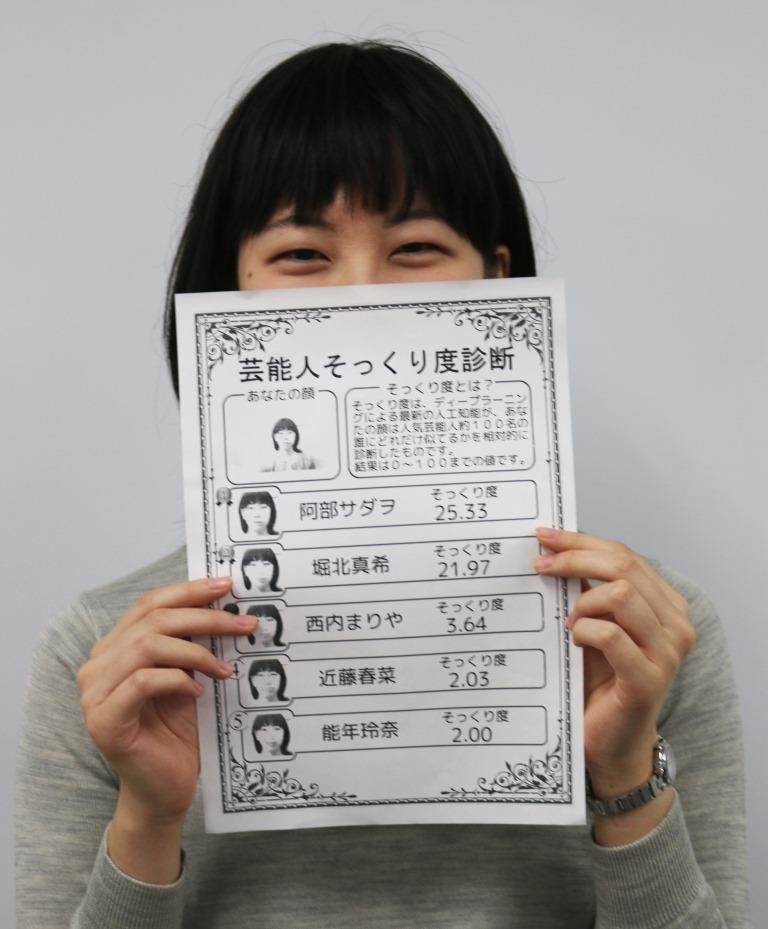 芸能人そっくり度診断
あなたの顔
そっくり度とは？
そっくり度は、ディープラーニン
グによる最新の人工知能が、あな
たの顔は人気芸能人約１００名の
誰にどれだけ似てるかを相対的に
診断したものです。
結果は０～１００までの値です。
阿部サダヲ
そっくり度
25.33
堀北真希
そっくり度
21.97
西内まりや
そっくり度
3.64
4
近藤春菜
そっくり度
2.03
5
能年玲奈
そっくり度
2.00